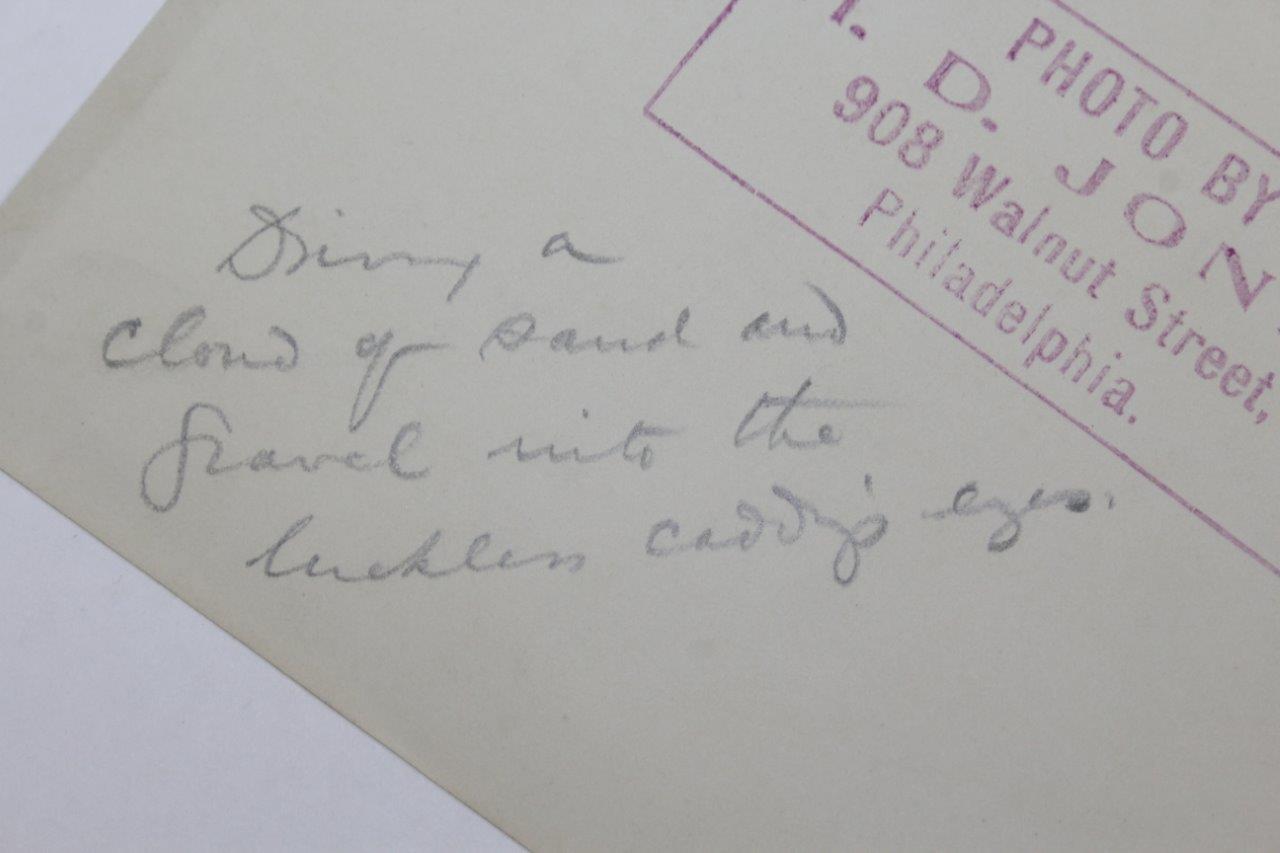 PHOTO BY
D. JON
908 Walnut Street,
Philadelphia.
Driving a
cloud of sand and
gravel into the
luckless caddy's eyes.